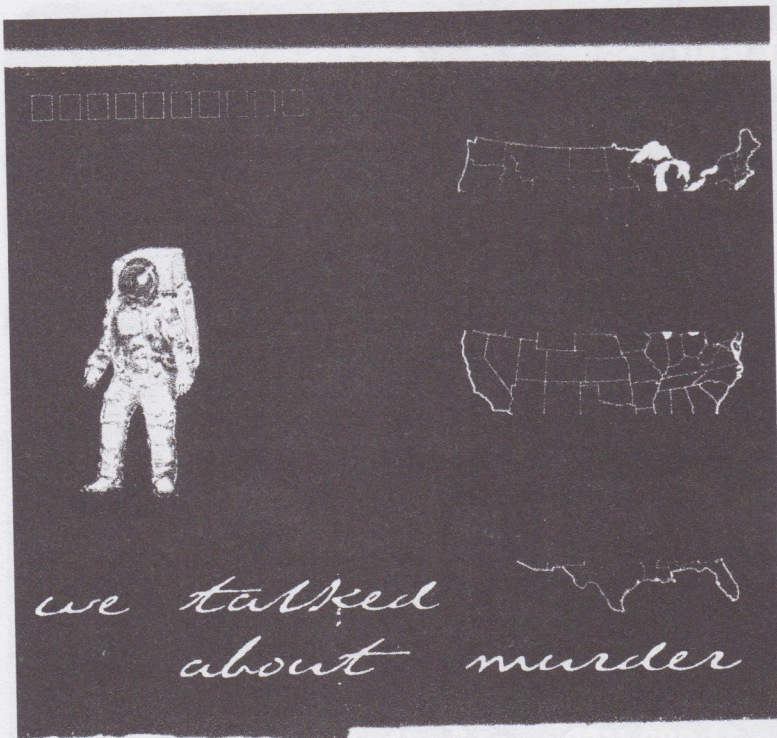 we talked
about murder